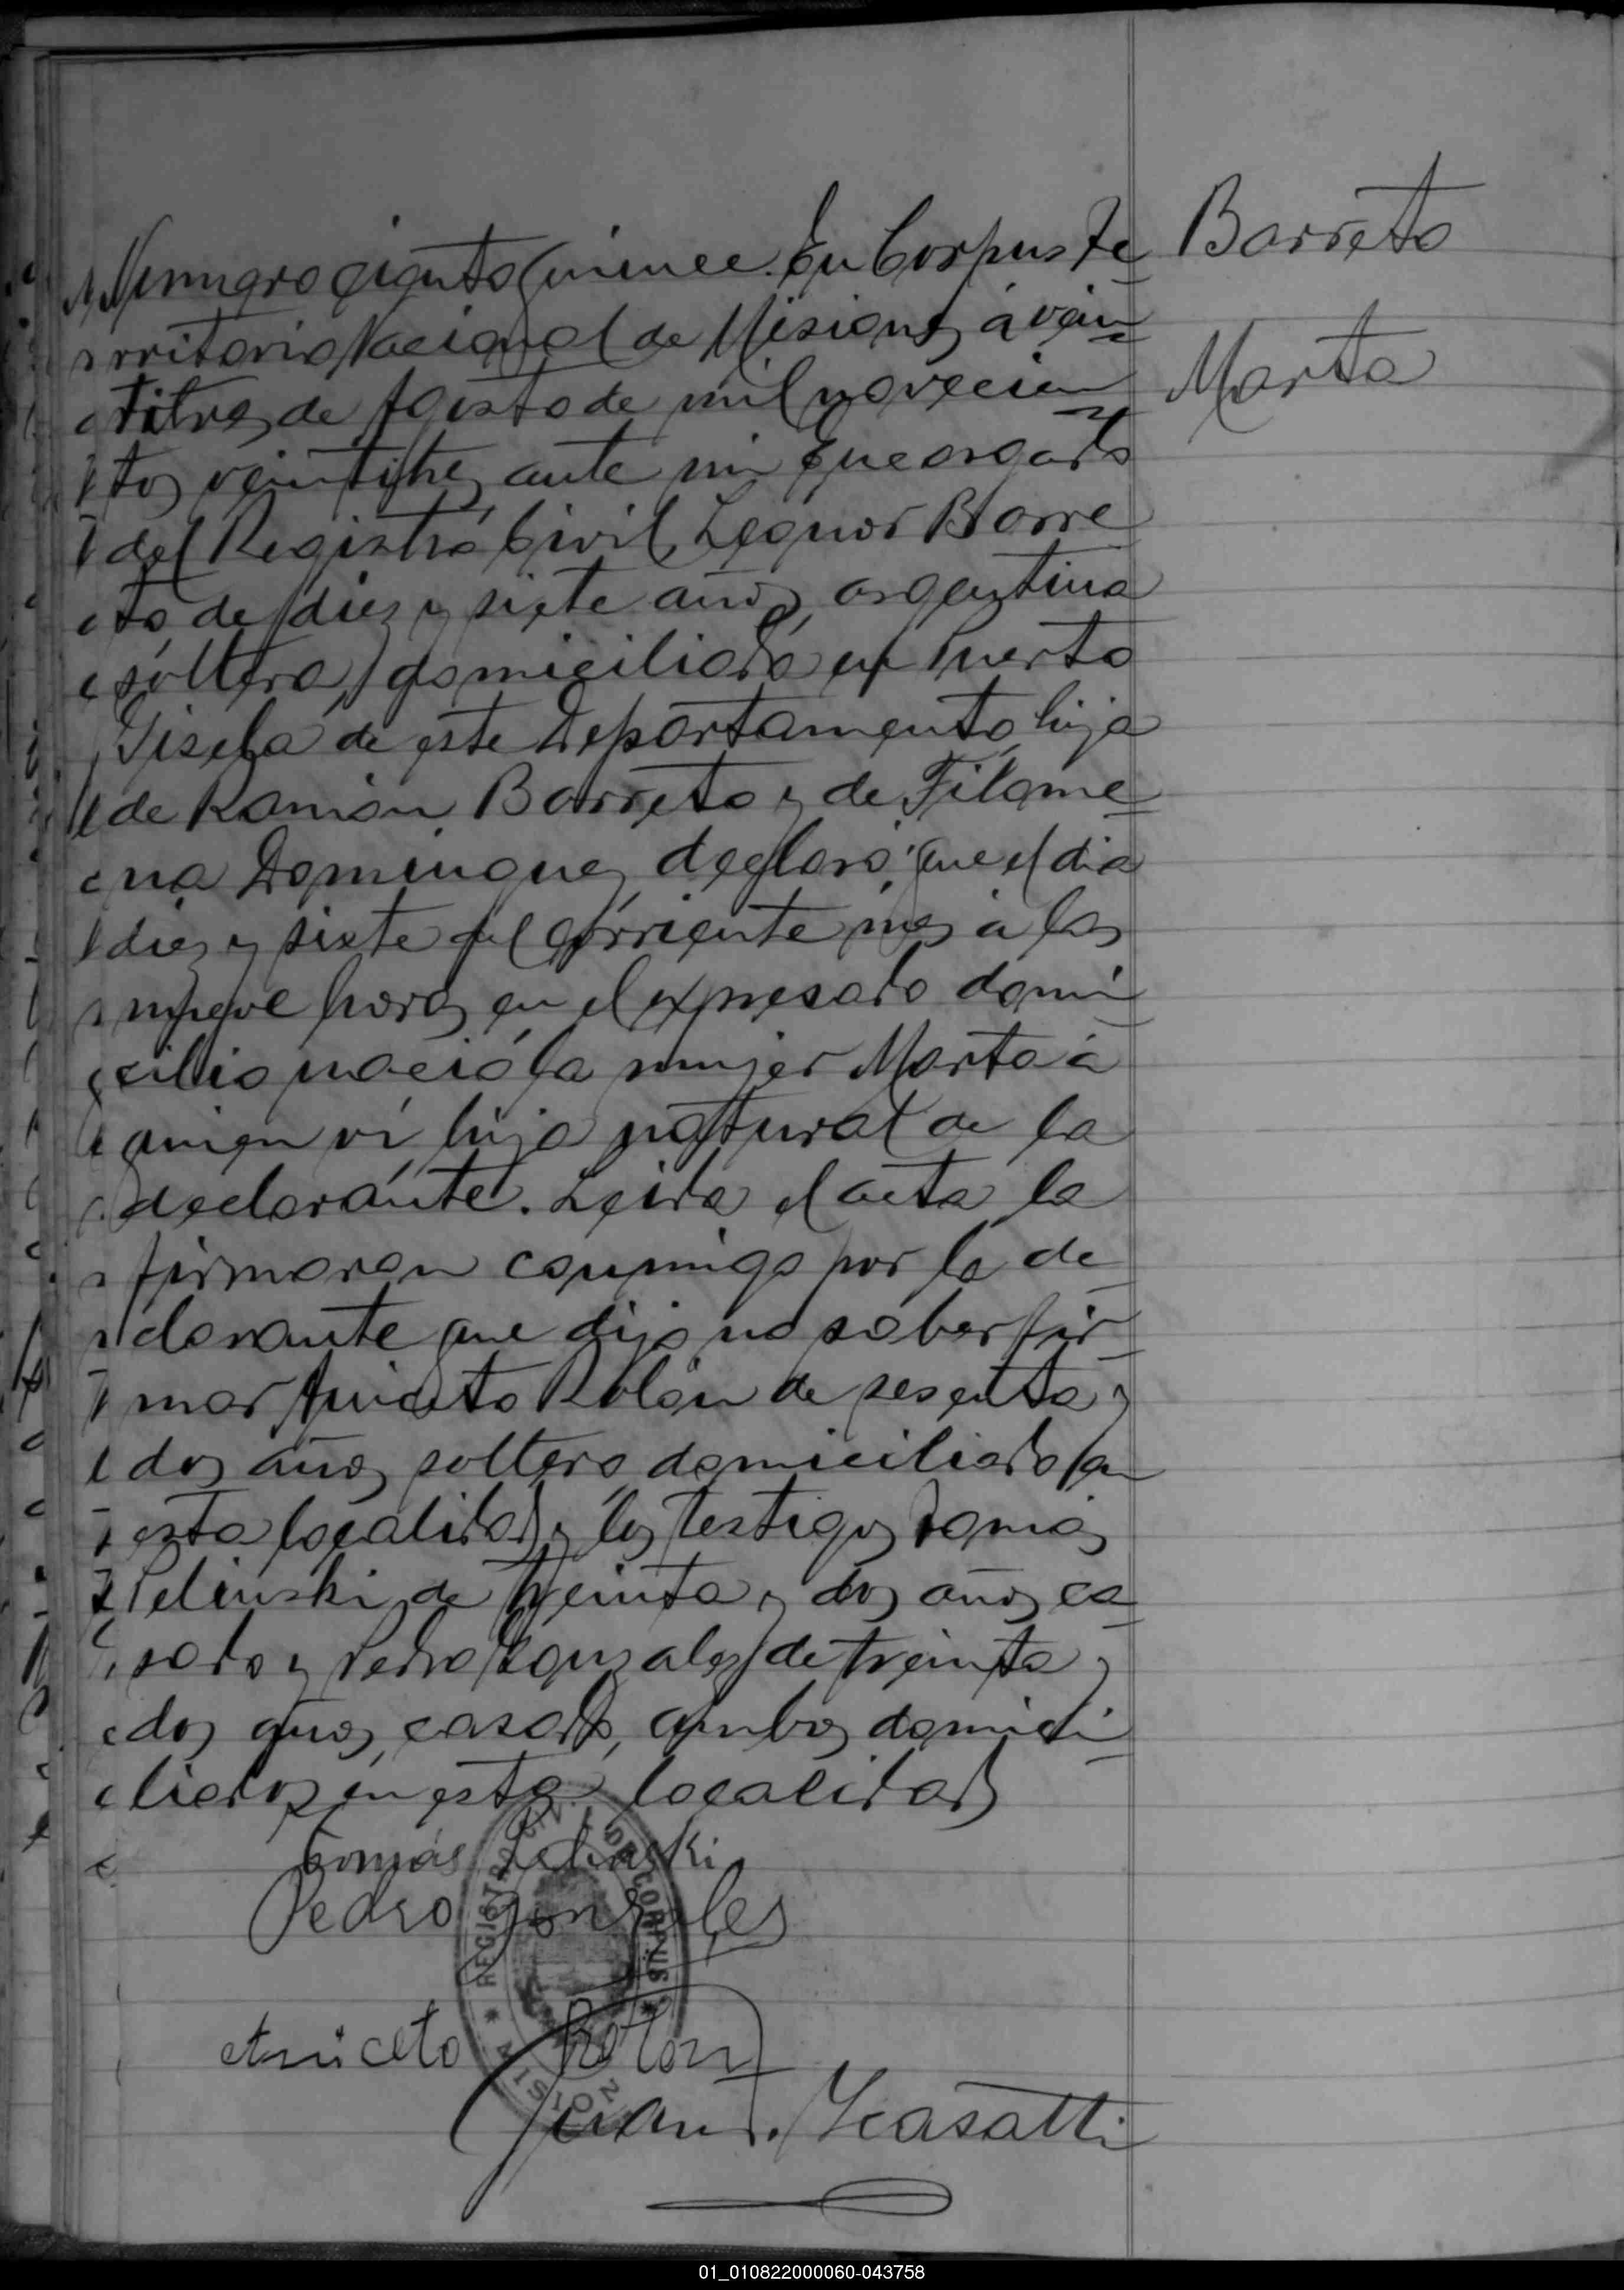 Numero ciento quince. En Corpus Te
rritorio Nacional de Misiones, á vein
titres de Agosto de mil novecien
tos veintitres, ante mi Encargado
del Registro Civil, Leonor Barre
to de diez y siete años, argentina
soltera, domiciliada en Puerto
Gisela de este Departamento, hija
de Ramon Barreto y de Filome
na Domingues declaró: que el dia
diez y siete del corriente mes á las
nueve horas en el expresado domi
cilio nació la mujer Marta á
quien vi hija natural de la
declarante. Leida el acta la
firmaron conmigo por la de
clarante que dijo no saber fir
mar Aniceto Rolón de sesenta y
dos años, soltero domiciliado en
esta localidad y los testigos Tomás
Zielinski de treinta y dos años, ca
sado y Pedro Gonzales de treinta y
dos años, casado, ambos domici
liados en esta localidad
Barreto
Marta
Tomás
Pedro Gonzales
Aniceto Rolon
Juan
REGISTRO CIVIL DE CORPUS
MISIONES
01_010822000060-043758